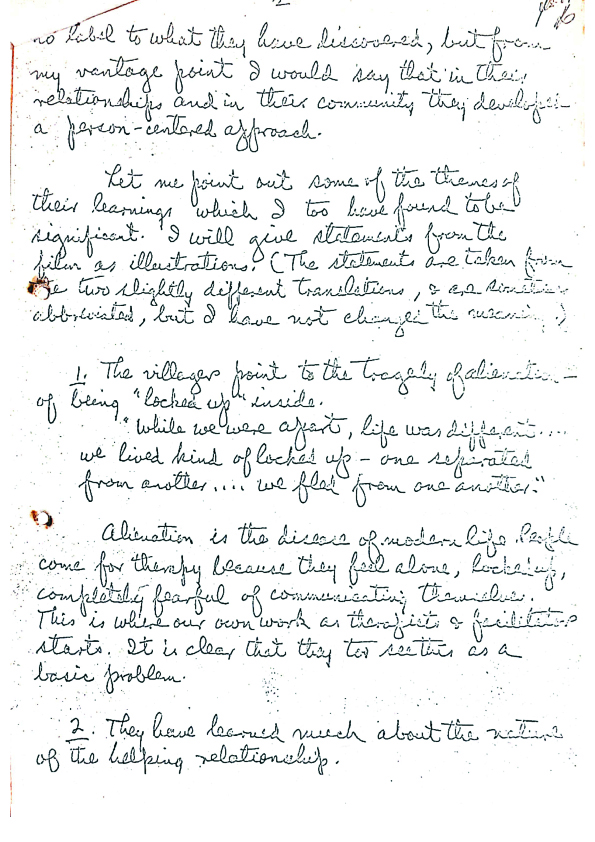 2
no label to what they have discovered, but from
my vantage point I would say that in their
relationships and in their community they developed
a person-centered approach.
Let me point out some of the themes of
their learnings which I too have found to be
significant. I will give statements from the
film as illustrations. (The statements are taken from
two slightly different translations, & are sometimes
abbreviated, but I have not changed the meaning.)
1. The villagers point to the tragedy of alienation –
of being "locked up" inside.
"While we were apart, life was different....
we lived kind of locked up – one separated
from another.... we fled from one another."
Alienation is the disease of modern life. People
come for therapy because they feel alone, locked up,
completely fearful of communicating themselves.
This is where our own work as therapists & facilitators
starts. It is clear that they too see this as a
basic problem.
2. They have learned much about the nature
of the helping relationship.